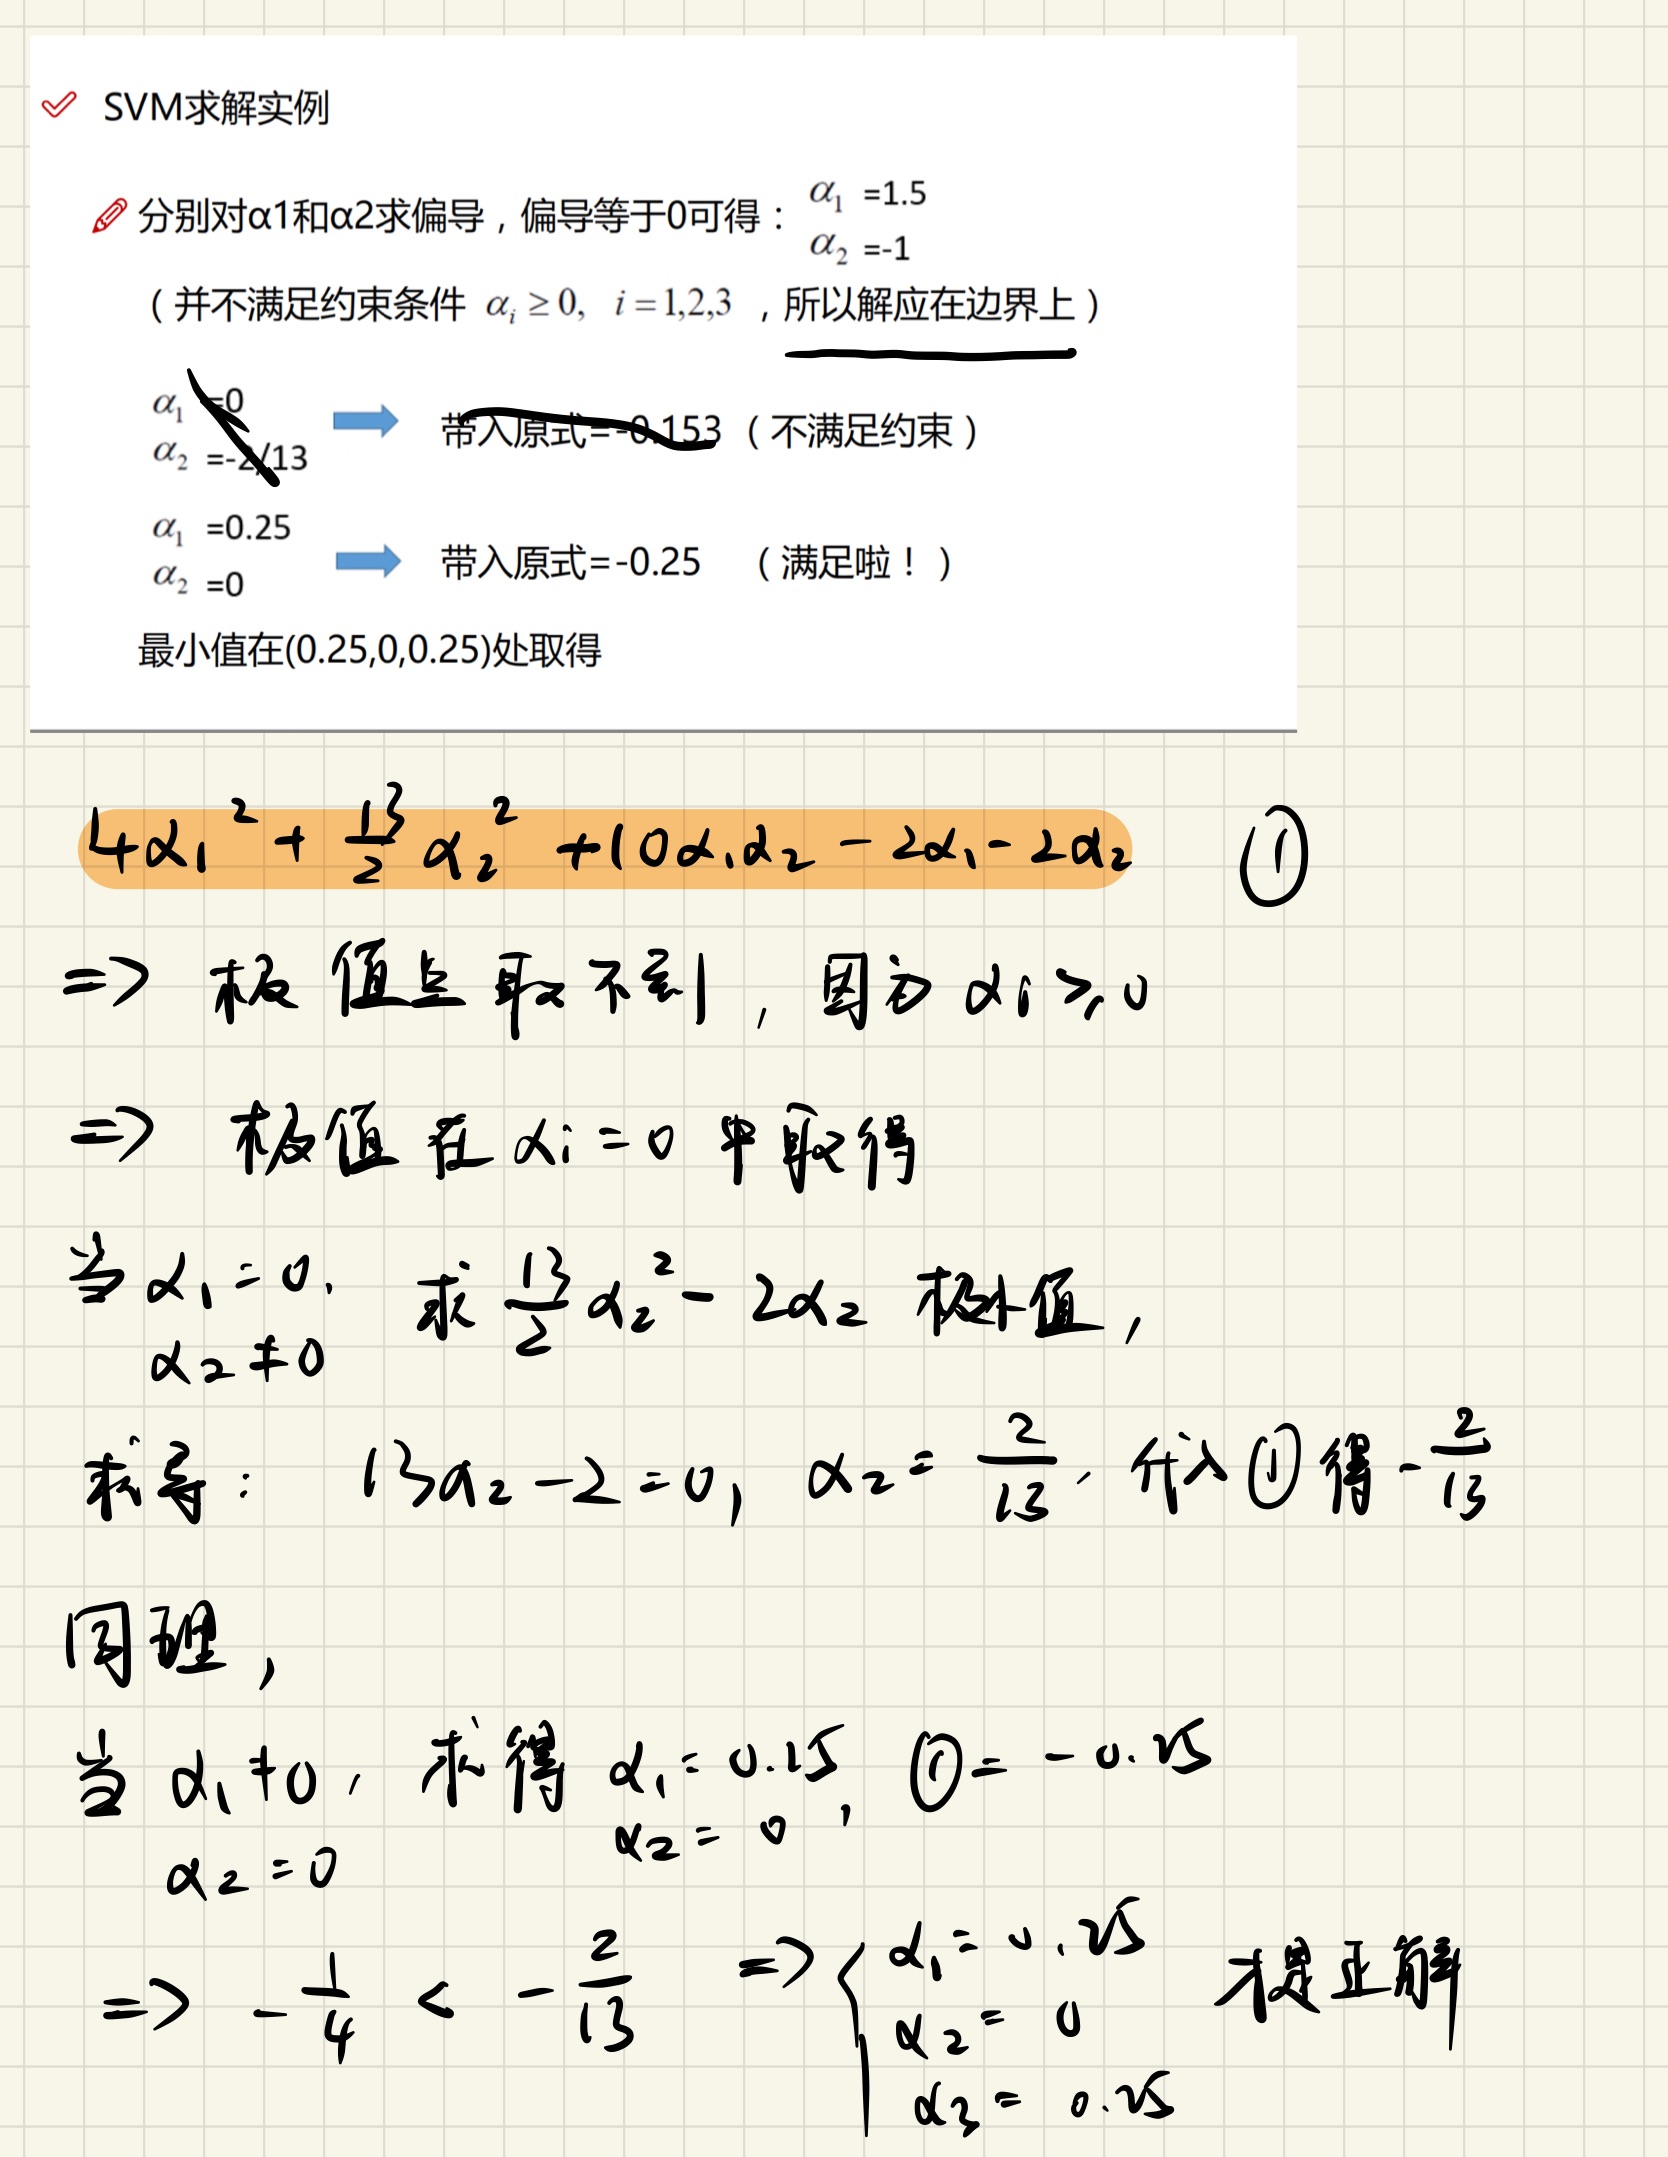 SVM求解实例
分别对α1和α2求偏导，偏导等于0可得： α₁ =1.5
α₂ =-1
（并不满足约束条件 αᵢ ≥ 0, i = 1,2,3 ，所以解应在边界上）
α₁ =0
α₂ =-2/13
带入原式=-0.153（不满足约束）
α₁ =0.25
α₂ =0
带入原式=-0.25 （满足啦！）
最小值在(0.25,0,0.25)处取得
4α₁² + 13/2 α₂² + 10α₁α₂ - 2α₁ - 2α₂ ①
=> 极值点取不到, 因为 αi ≥ 0
=> 极值在 αi = 0 中取得
当 α₁ = 0, 求 13/2 α₂² - 2α₂ 极小值,
α₂ ≠ 0
求导: 13α₂ - 2 = 0, α₂ = 2/13, 代入①得 - 2/13
同理,
当 α₁ ≠ 0, 求得 α₁ = 0.25, ① = - 0.25
α₂ = 0 α₂ = 0
=> - 1/4 < - 2/13 => { α₁ = 0.25
α₂ = 0 才是正解
α₃ = 0.25